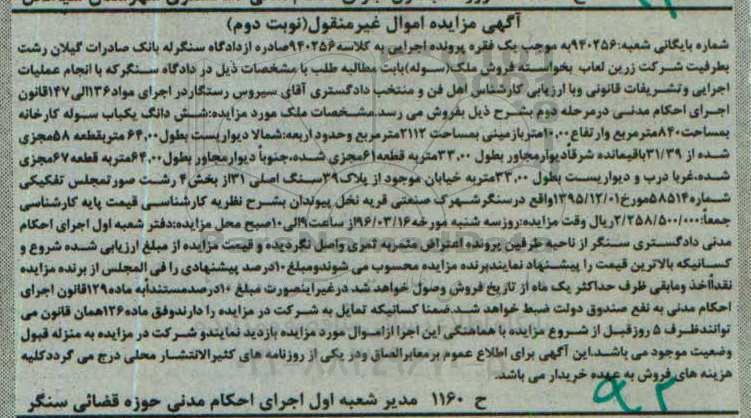 آگهی مزایده اموال غیرمنقول(نوبت دوم)
شماره بایگانی شعبه:۹۴۰۲۵۶به موجب یک فقره پرونده اجرایی به کلاسه۹۴۰۲۵۶صادره ازدادگاه سنگرله بانک صادرات گیلان رشت
بطرفیت شرکت زرین لعاب بخواسته فروش ملک(سوله)بابت مطالبه طلب با مشخصات ذیل در دادگاه سنگرکه با انجام عملیات
اجرایی وتشریفات قانونی وبا ارزیابی کارشناس اهل فن و منتخب دادگستری آقای سیروس رستگاردر اجرای مواد۱۳۶الی۱۴۷قانون
اجرای احکام مدنی درمرحله دوم بشرح ذیل بفروش می رسد.مشخصات ملک مورد مزایده:شش دانگ یکباب سوله کارخانه
بمساحت۸۴۰مترمربع وارتفاع۱۰٫۰۰متربازمینی بمساحت۲۱۱۲مترمربع وحدود اربعه:شمالا دیواریست بطول۶۴٫۰۰ متربقطعه ۵۸مجزی
شده از ۳۱/۳۹باقیمانده شرقاًدیوارمجاور بطول ۳۳٫۰۰متربه قطعه۶۱مجزی شده،جنوباً دیوارمجاور بطول۶۴٫۰۰متربه قطعه۶۷مجزی
شده،غربا درب و دیواریست بطول ۳۳٫۰۰متربه خیابان موجود از پلاک۳۹سنگ اصلی ۳۱از بخش۴ رشت صورتمجلس تفکیکی
شماره۵۸۵۱۴مورخ۱۳۹۵/۱۲/۰۱واقع درسنگرشهرک صنعتی قریه نخل پیوندان بشرح نظریه کارشناسی قیمت پایه کارشناسی
جمعاً:۲/۲۵۸/۵۰۰/۰۰۰ریال وقت مزایده:روزسه شنبه مورخه۹۶/۰۳/۱۶از ساعت۹الی۱۰صبح محل مزایده:دفتر شعبه اول اجرای احکام
مدنی دادگستری سنگر از ناحیه طرفین پرونده اعتراض مثمربه ثمری واصل نگردیده و قیمت مزایده از مبلغ ارزیابی شده شروع و
کسانیکه بالاترین قیمت را پیشنهاد نمایندبرنده مزایده محسوب می شوندومبلغ۱۰درصد پیشنهادی را فی المجلس از برنده مزایده
نقداًاخذ ومابقی ظرف حداکثر یک ماه از تاریخ فروش وصول خواهد شد درغیراینصورت مبلغ ۱۰درصدمستنداًبه ماده۱۲۹قانون اجرای
احکام مدنی به نفع صندوق دولت ضبط خواهد شد.ضمنا کسانیکه تمایل به شرکت در مزایده را دارندوفق ماده۱۲۶همان قانون می
توانندظرف ۵ روزقبل از شروع مزایده با هماهنگی این اجرا ازاموال مورد مزایده بازدید نمایندو شرکت در مزایده به منزله قبول
وضعیت موجود می باشد.این آگهی برای اطلاع عموم برمعابرالصاق ودر یکی از روزنامه های کثیرالانتشار محلی درج می گرددکلیه
هزینه های فروش به عهده خریدار می باشد.
ح ۱۱۶۰ مدیر شعبه اول اجرای احکام مدنی حوزه قضائی سنگر